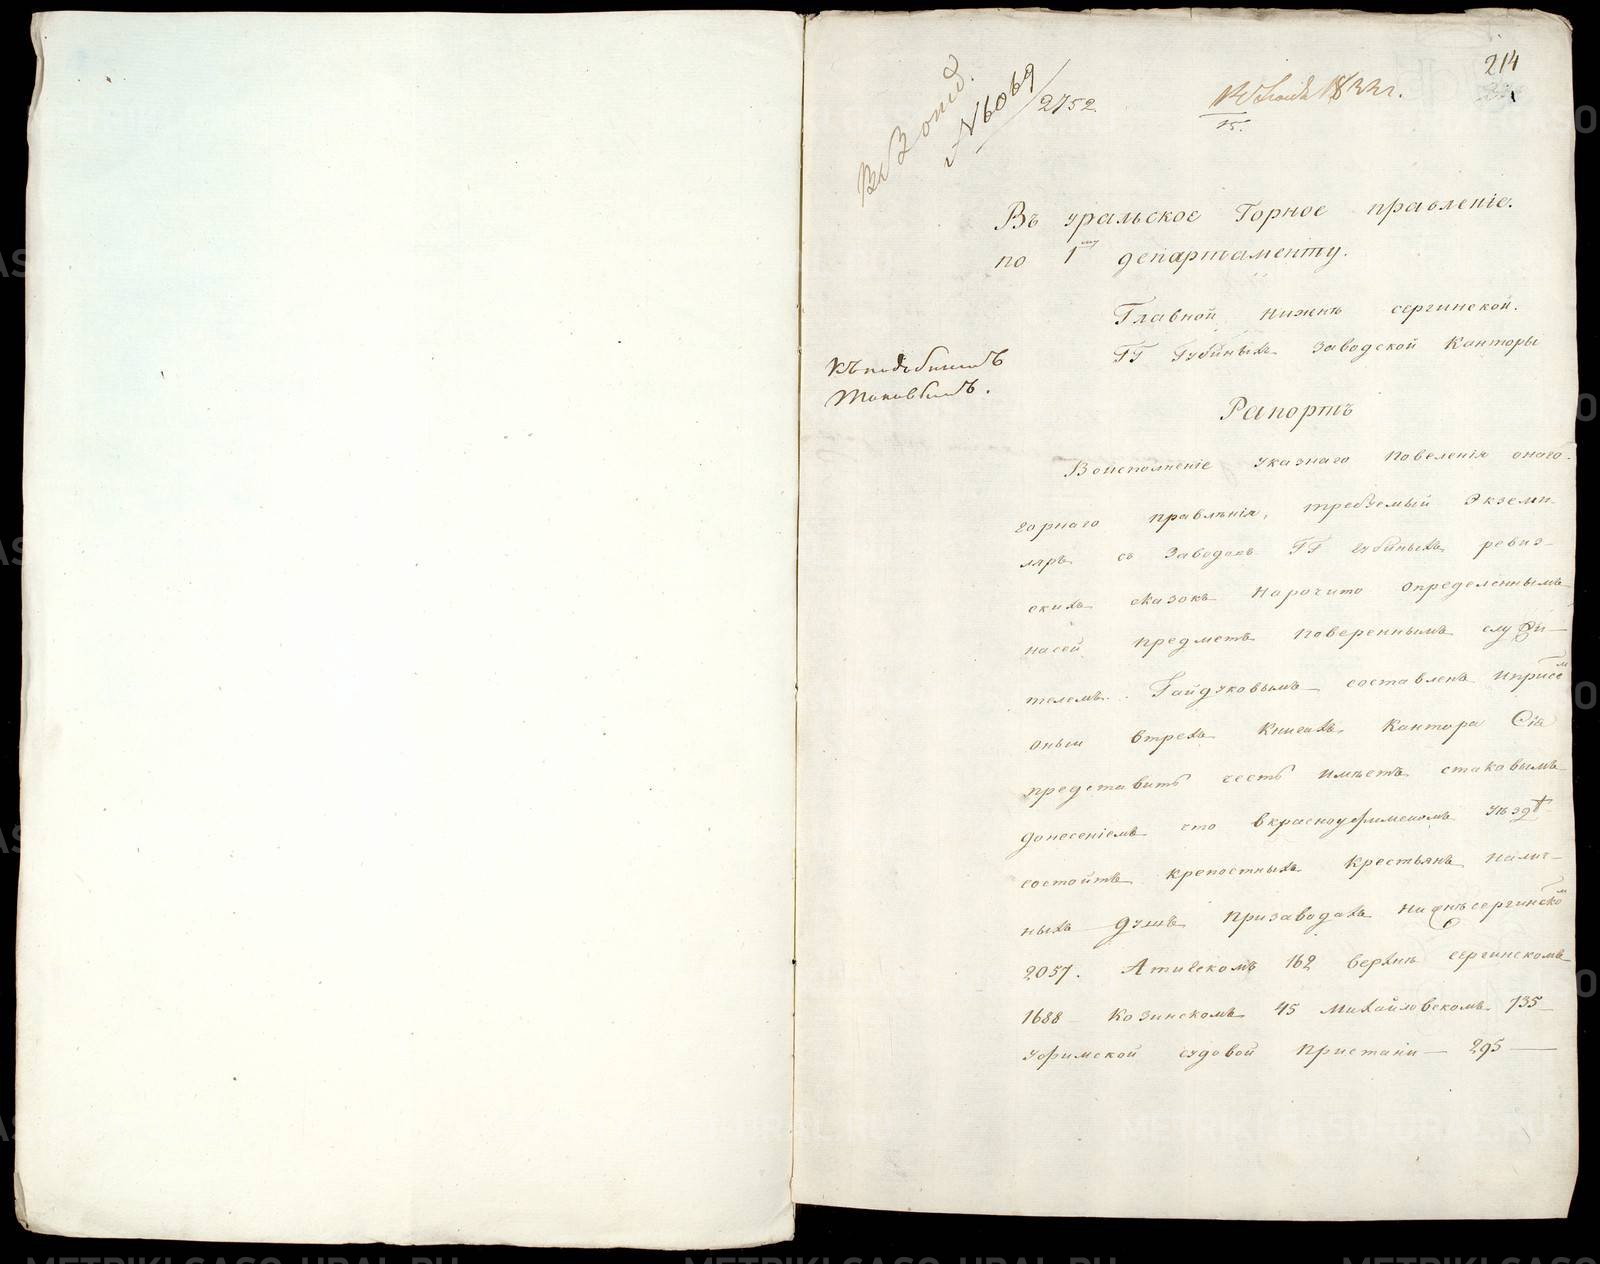 214
1833 г.
15.
№ 6069
2752
Въ уральское Горное правленіе.
по 1му департаменту.
Главной нижне сергинской.
ГГ Губиныхъ Заводской Канторы
Къ подобнымъ
таковымъ.
Рапортъ
Воисполненіе указнаго повеленія онаго
горнаго правленія, требуемый Экземп-
ляръ съ Заводовъ ГГ губиныхъ ревиз-
скихъ сказокъ нарочито определеннымъ
насей предметъ повереннымъ служи-
телемъ Гайдуковымъ составленъ иприсемъ
оныи втрехъ книгахъ Кантора Сія
представить честь имѣетъ стаковымъ
донесеніемъ что вкрасноуфимскомъ уѣздѣ
состоитъ крепостныхъ крестьянъ налич-
ныхъ душъ призаводахъ нижнѣсергинском
2057. Атигскомъ 162 верхнѣ сергинскомъ
1688 Козинскомъ 45 михайловскомъ 735
уфимской судовой пристани — 295 —
METRIKI.GASO-URAL.RU